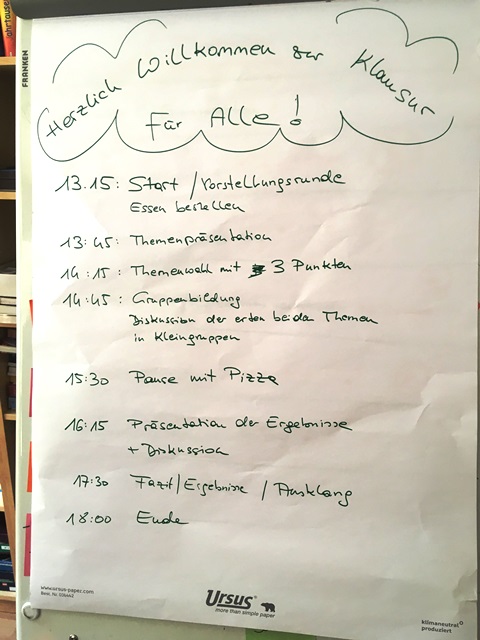 Herzlich Willkommen zur Klausur
Für Alle!
13.15: Start / Vorstellungsrunde
Essen bestellen
13:45: Themenpräsentation
14:15: Themenwahl mit 3 Punkten
14:45: Gruppenbildung
Diskussion der ersten beiden Themen
in Kleingruppen
15:30 Pause mit Pizza
16:15 Präsentation der Ergebnisse
+ Diskussion
17:30 Fazit / Ergebnisse / Ausklang
18:00 Ende
www.ursus-paper.com
Ursus®
more than simple paper
klimaneutral
produziert
FRANKEN